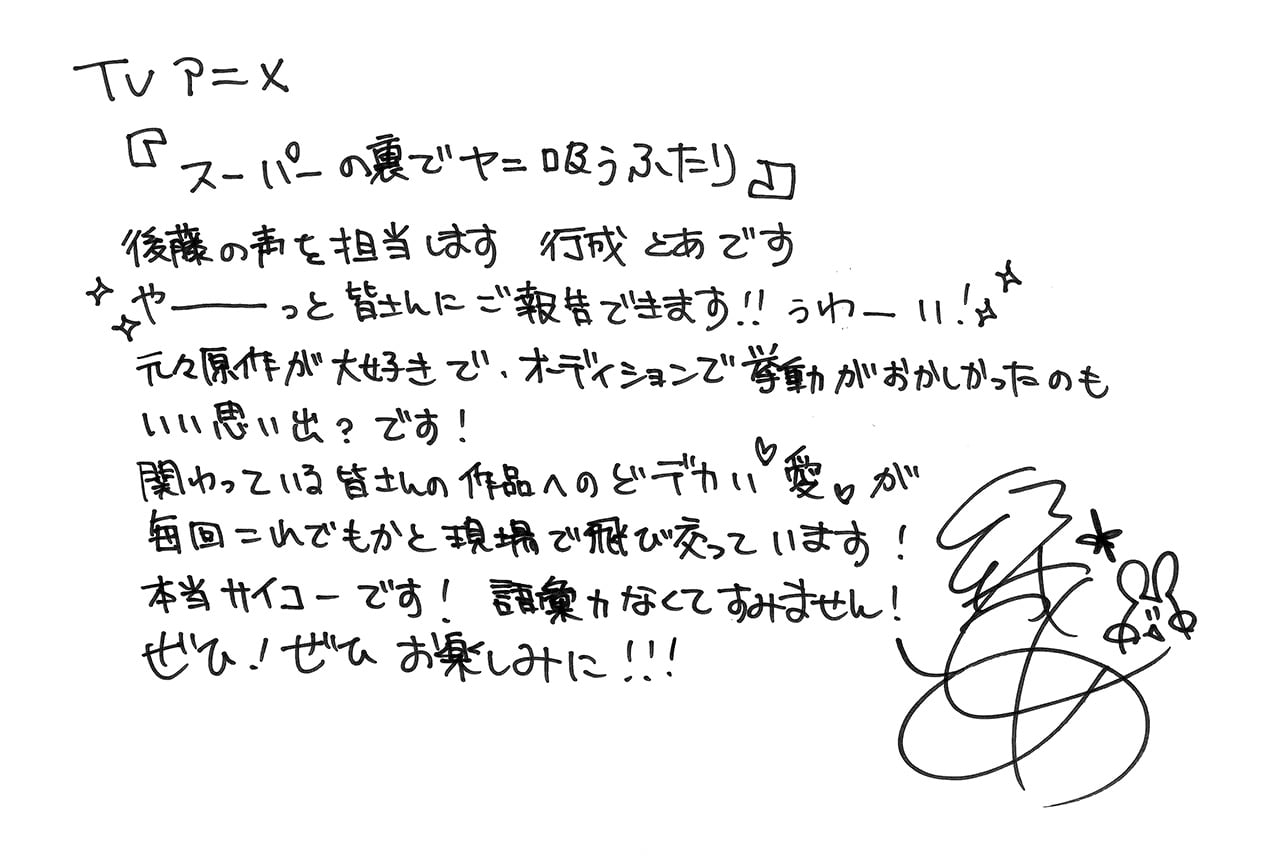 TVアニメ
『スーパーの裏でヤニ吸うふたり』
後藤の声を担当します 行成とあです
や───っと皆さんにご報告できます!! うわーい!
元々原作が大好きで、オーディションで挙動がおかしかったのも
いい思い出?です!
関わっている皆さんの作品へのどデカい♡愛♡が
毎回これでもかと現場で飛び交っています!
本当サイコーです! 語彙力なくてすみません!
ぜひ!ぜひ お楽しみに!!!